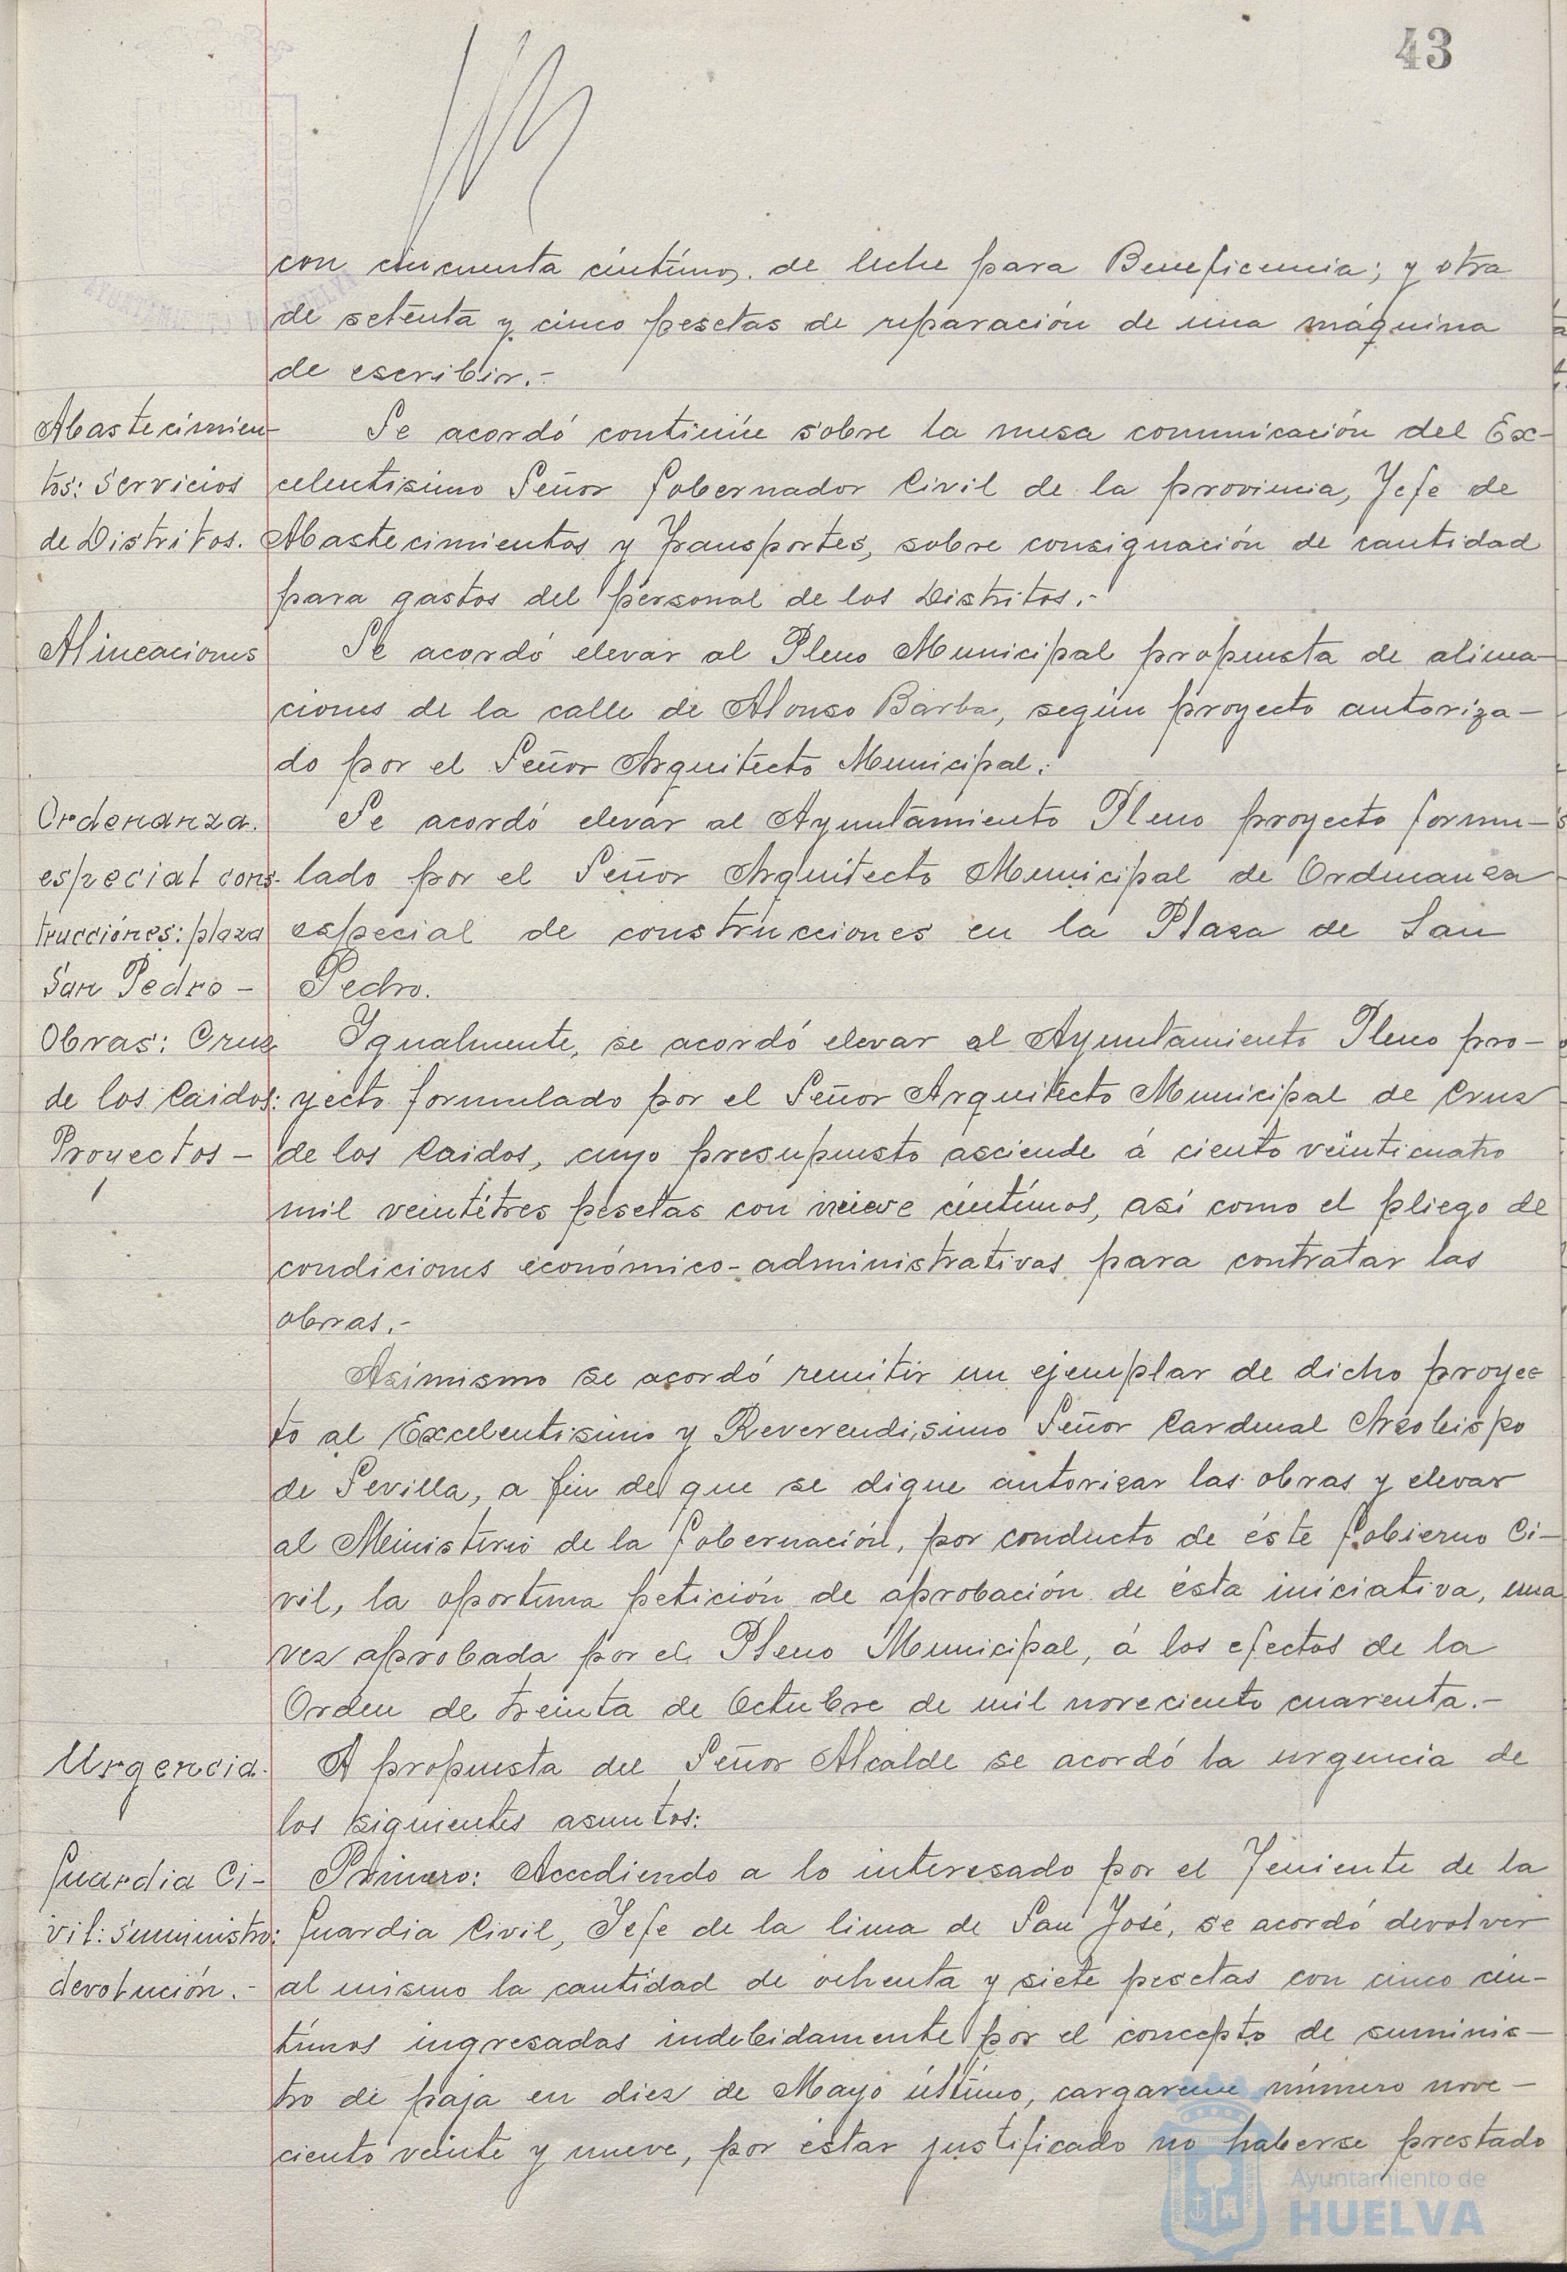 43
con cincuenta céntimos, de leche para Beneficencia; y otra
de setenta y cinco pesetas de reparación de una máquina
de escribir.-
Abastecimien-
tos: Servicios
de Distritos.
Se acordó continúe sobre la mesa comunicación del Ex-
celentisimo Señor Gobernador Civil de la provincia, Jefe de
Abastecimientos y Transportes, sobre consignación de cantidad
para gastos del personal de los Distritos.-
Alineaciones
Se acordó elevar al Pleno Municipal propuesta de alinea-
ciones de la calle de Alonso Barba, según proyecto autoriza-
do por el Señor Arquitecto Municipal.
Ordenanza.
especial cons-
trucciónes: plaza
San Pedro -
Se acordó elevar al Ayuntamiento Pleno proyecto formu-
lado por el Señor Arquitecto Municipal de Ordenanza
especial de construcciones en la Plaza de San
Pedro.
Obras: Cruz
de los Caidos:
Proyectos -
Igualmente, se acordó elevar al Ayuntamiento Pleno pro-
yecto formulado por el Señor Arquitecto Municipal de Cruz
de los Caidos, cuyo presupuesto asciende á ciento veinticuatro
mil veintitres pesetas con nueve céntimos, así como el pliego de
condiciones económico-administrativas para contratar las
obras.-
Asímismo se acordó remitir un ejemplar de dicho proyec
to al Excelentisimo y Reverendisimo Señor Cardenal Arzobispo
de Sevilla, a fin de que se digne autorizar las obras y elevar
al Ministerio de la Gobernación, por conducto de éste Gobierno Ci-
vil, la oportuna petición de aprobación de ésta iniciativa, una
vez aprobada por el Pleno Municipal, á los efectos de la
Orden de treinta de Octubre de mil noveciento cuarenta.-
Urgencia.
A propuesta del Señor Alcalde se acordó la urgencia de
los siguientes asuntos:
Guardia Ci-
vil: Suministro:
devolución.-
Primero: Accediendo a lo interesado por el Teniente de la
Guardia Civil, Jefe de la linea de San José, se acordó devolver
al mismo la cantidad de ochenta y siete pesetas con cinco cén-
timos ingresadas indebidamente por el concepto de suminis-
tro de paja en diez de Mayo último, cargareme número nove-
ciento veinte y nueve, por estar justificado no haberse prestado
Ayuntamiento de
HUELVA